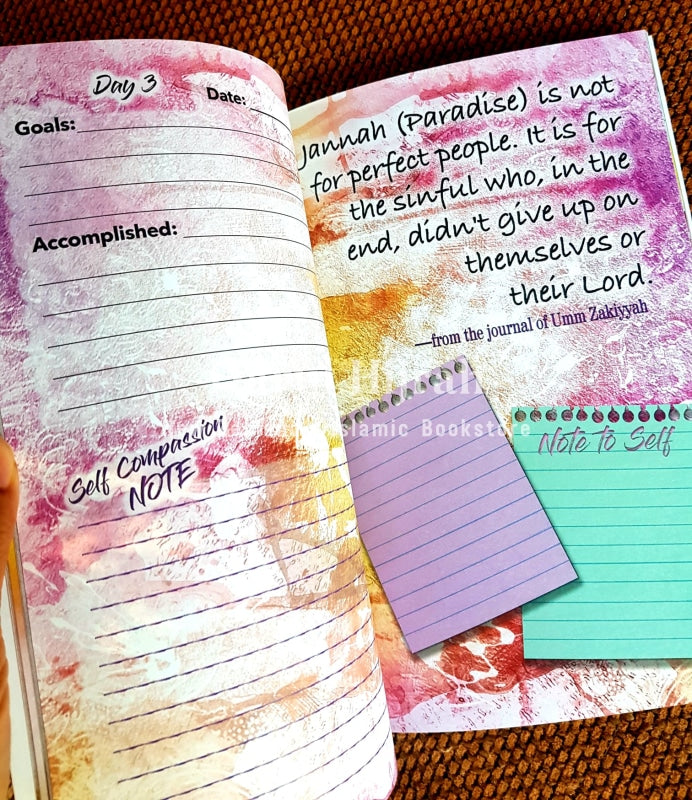 Day 3
Date:
Goals:
Accomplished:
Self Compassion
NOTE
Jannah (Paradise) is not
for perfect people. It is for
the sinful who, in the
end, didn't give up on
themselves or
their Lord.
—from the journal of Umm Zakiyyah
Islamic Bookstore
Note to Self